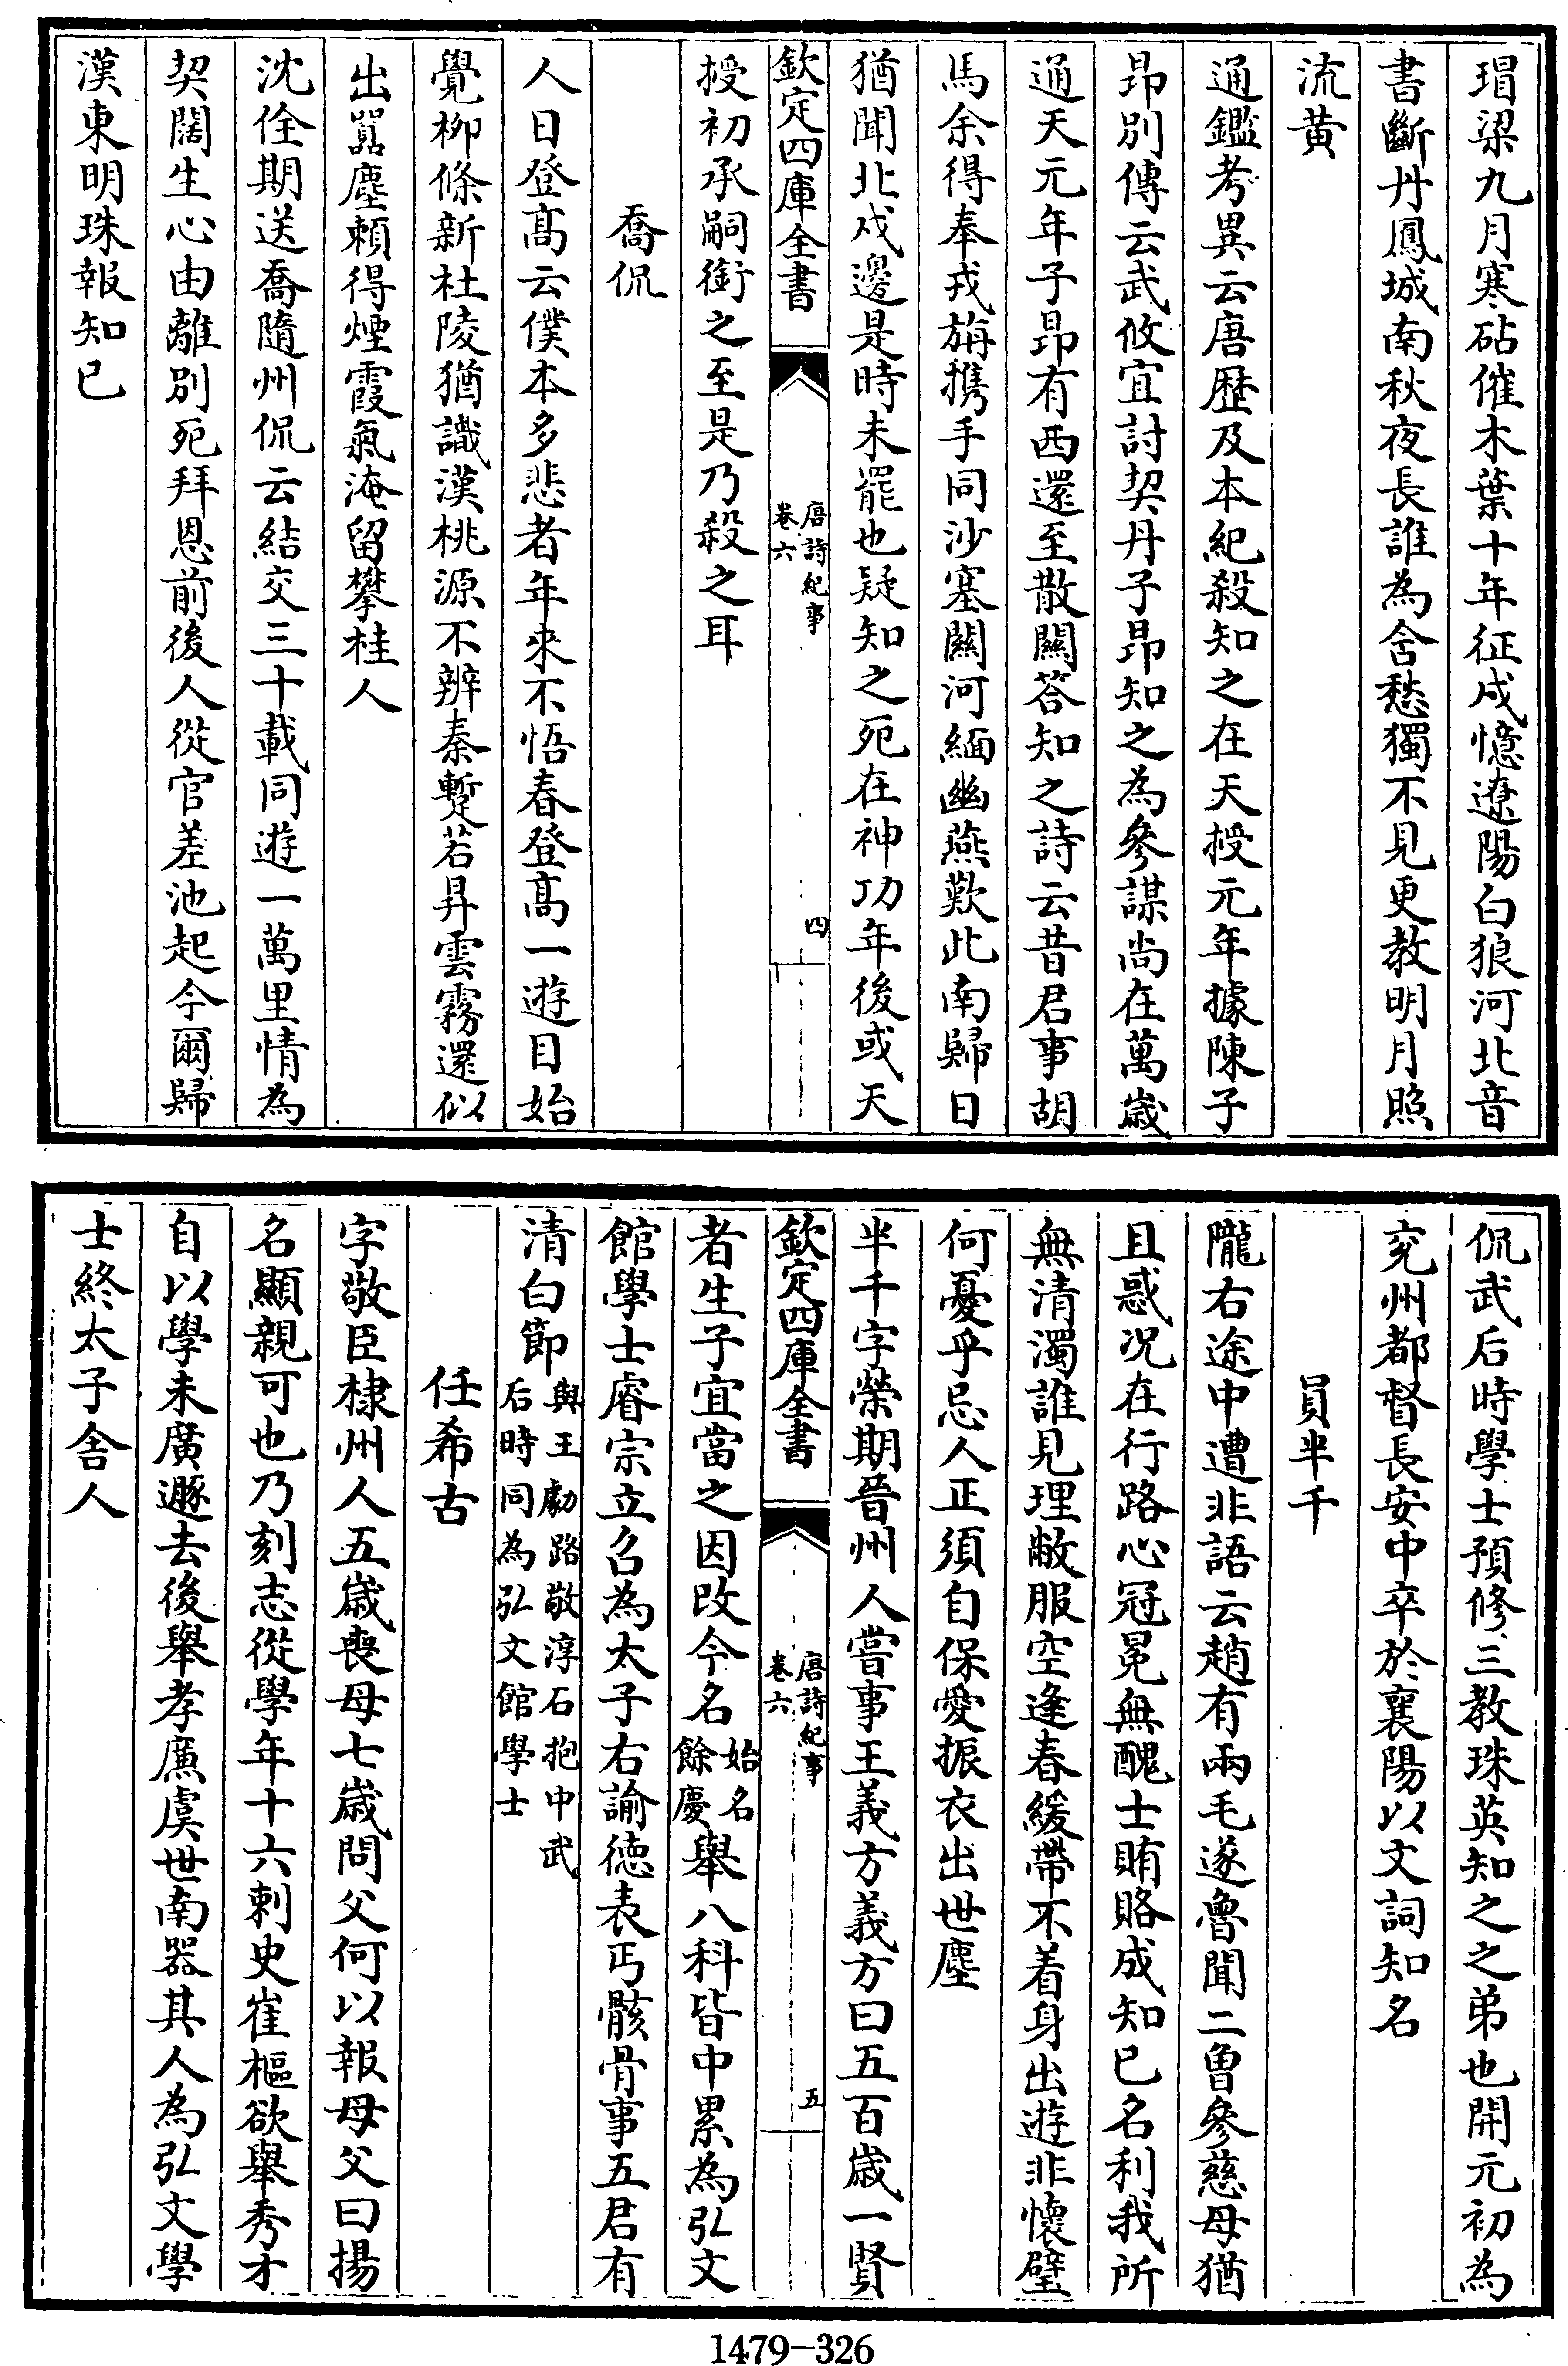 瑁梁九月寒砧催木葉十年征戍憶遼陽白狼河北音
書斷丹鳳城南秋夜長誰為含愁獨不見更教明月照
流黄
通鑑考異云唐歷及本紀殺知之在天授元年據陳子
昻別傳云武攸宜討契丹子昻知之為參謀尚在萬歲
通天元年子昻有西還至散關答知之詩云昔君事胡
馬余得奉戎旃攜手同沙塞關河緬幽燕歎此南歸日
猶聞北戍邊是時未罷也疑知之死在神功年後或天
欽定四庫全書
唐詩紀事
卷六
四
授初承嗣銜之至是乃殺之耳
喬侃
人日登髙云僕本多悲者年來不悟春登髙一遊目始
覺柳條新杜陵猶識漢桃源不辨秦暫若昇雲霧還似
出囂塵頼得煙霞氣淹留攀桂人
沈佺期送喬隨州侃云結交三十載同遊一萬里情為
契闊生心由離別死拜恩前後人從官差池起今爾歸
漢東明珠報知已
侃武后時學士預修三教珠英知之之弟也開元初為
兖州都督長安中卒於襄陽以文詞知名
員半千
隴右途中遭非語云趙有兩毛遂魯聞二曽參慈母猶
且惑况在行路心冠冕無醜士賄賂成知已名利我所
無清濁誰見理敝服空逢春緩帶不着身出遊非懷璧
何憂乎忌人正須自保愛振衣出世塵
半千字榮期晉州人嘗事王義方義方曰五百歲一賢
欽定四庫全書
唐詩紀事
卷六
五
者生子宜當之因改今名始名餘慶舉八科皆中累為弘文
館學士睿宗立召為太子右諭徳表丐骸骨事五君有
清白節與王勮路敬淳石抱中武后時同為弘文館學士
任希古
字敬臣棣州人五歲喪母七歲問父何以報母父曰揚
名顯親可也乃刻志從學年十六刺史崔樞欲舉秀才
自以學未廣遯去後舉孝廉虞世南器其人為弘文學
士終太子舍人
1479-326